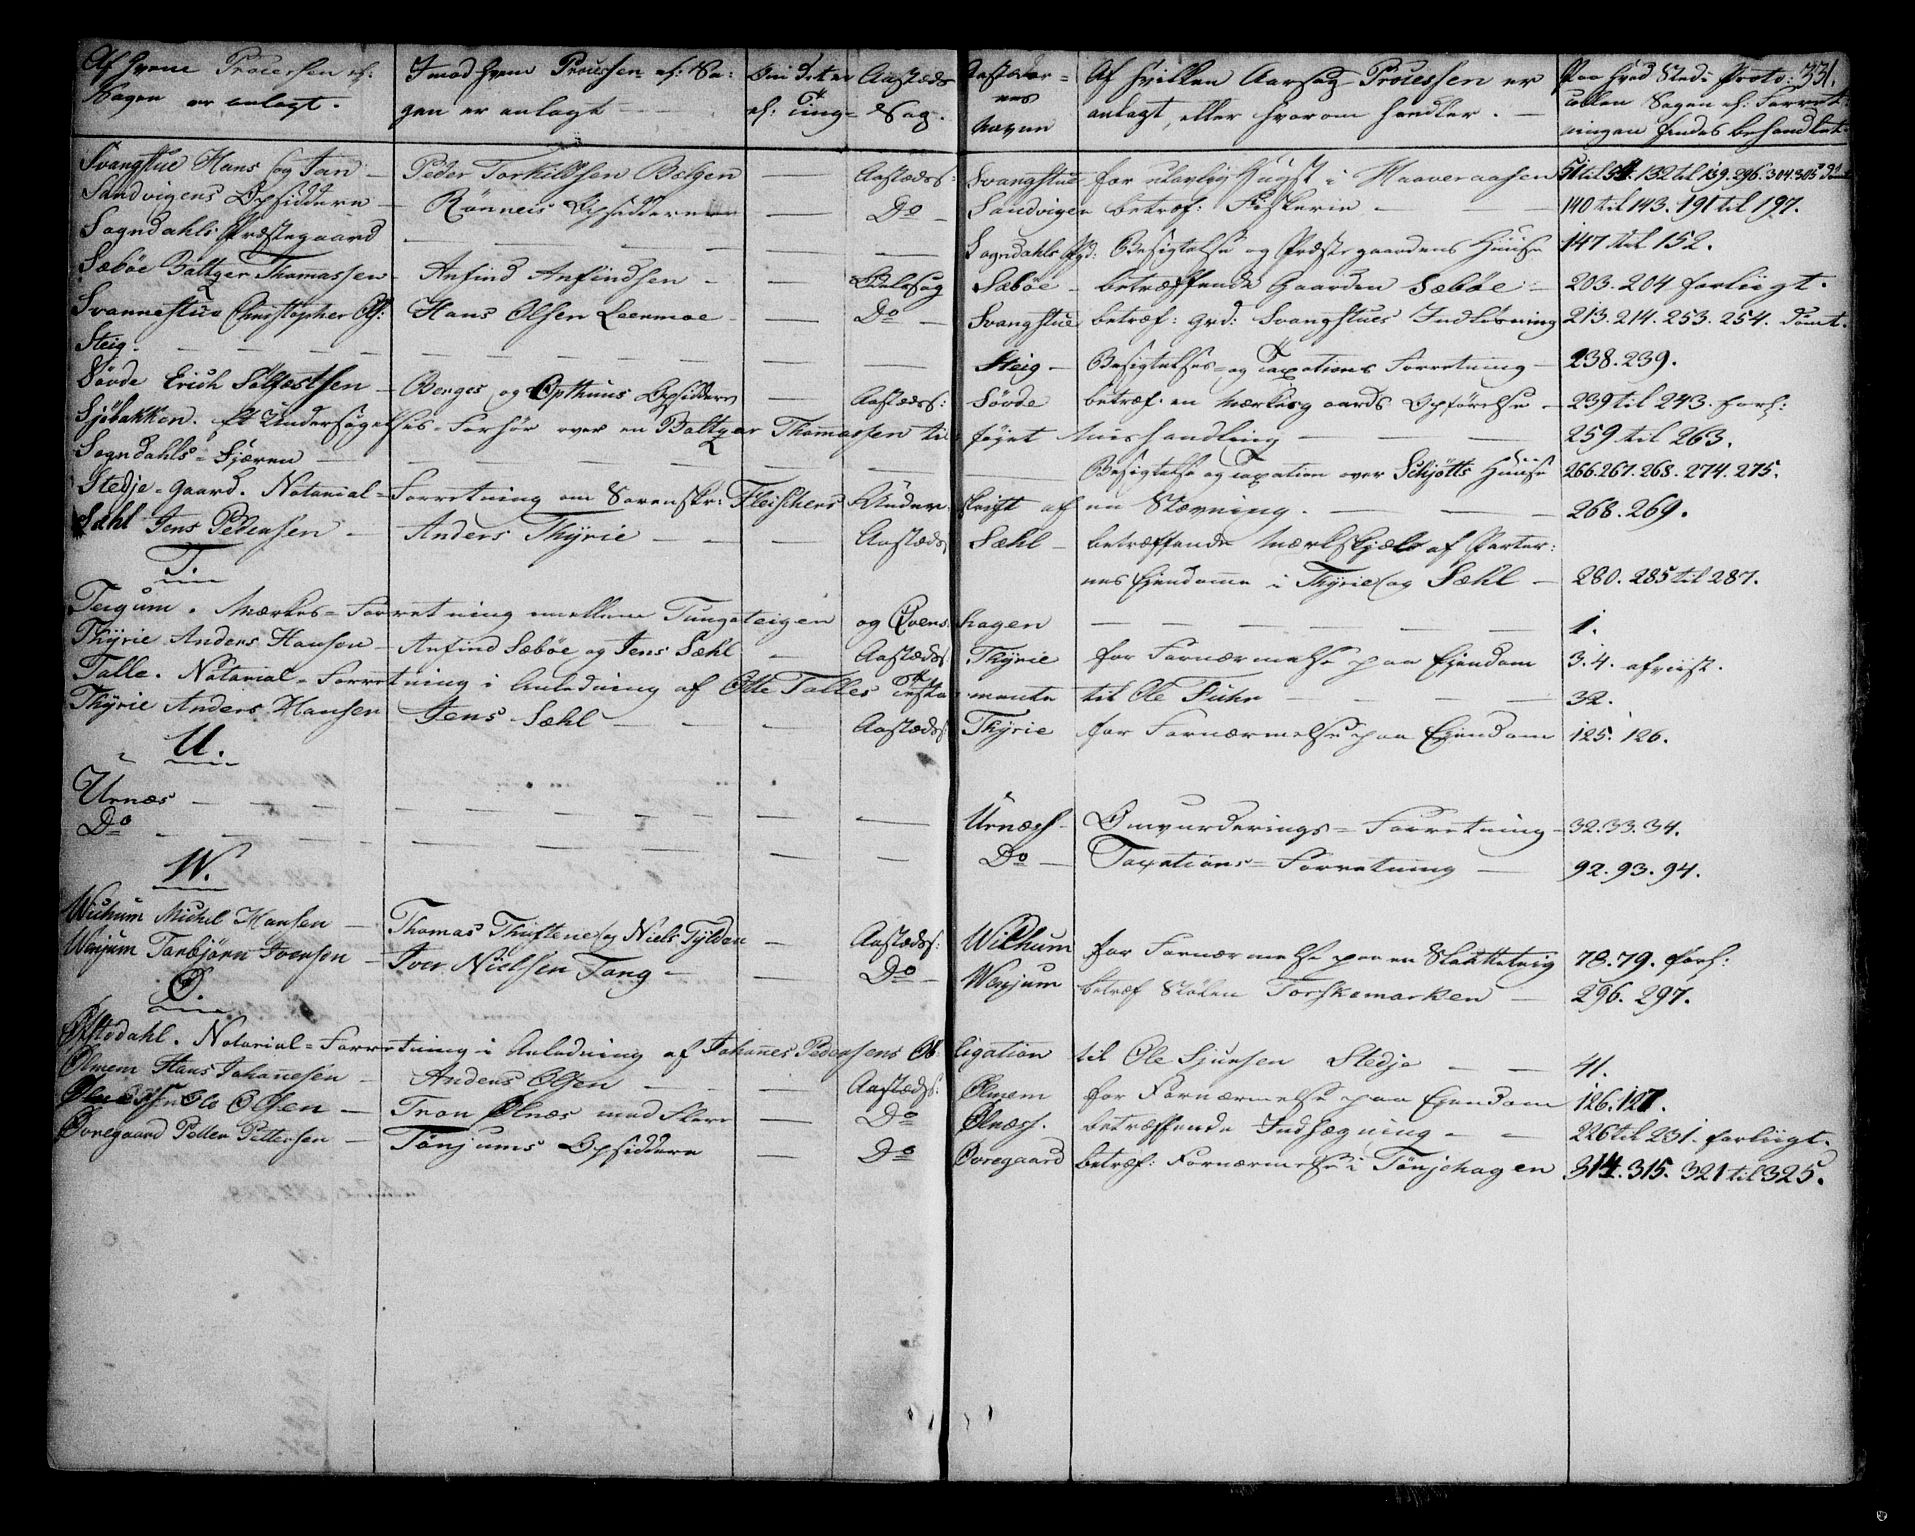 Af hvem Processen el: Sagen er anlagt. | Imod hvem Processen el: Sagen er anlagt | Om det er el: Ting- | Aastæds Sag. | Aastedernes Navne | Af hvilken Aarsag Processen er anlagt, eller hvorom handler. | Paa hvad Sted i Protocollen Sagen el: Forretningen findes behandlet. 331.
Svangstue Hans og Jan | Peder Torkildsen Bølgen | — | Aastæds: | Svangstue | for ulovlig Hugst i Haaveraasen | 51 til 54. 132 til 139. 296. 304. 305
Sandvigens Opsiddere | Rønneis Opsiddere | — | Do | Sandvigen | betræf: Fiskerie | 140 til 143. 191 til 197.
Sogndahls Præstegaard | — | — | Sogndahls Pgd: | Besigtelse og Præstegaardens Huuse | 147 til 152.
Sæbøe Baltzer Thomassen | Anfind Anfindsen | — | Sæbøe | betræffende Gaarden Sæbøe | 203. 204 forliigt.
Svannestue Christopher Ols: | Hans Olsen Leermoe | — | Do | Svangstue | betræf: Grd: Svangstues Indløsning | 213. 214. 253. 254. dømt.
Steig. | — | — | Steig | Besigtelses- og Taxations Forretning | 238. 239.
Søvde Erich Sølfæstsen | Berges og Opthuns Opsiddere | — | Aastæds: | Søvde | betræf: en Mærkesgaards Opførelse | 239 til 243. forl:
Sjøbakken. Et Undersøgelses-Forhør over en Baltzer Thomassen tilføjet Mishandling | 259 til 263.
Sogndahls-Fjæren | — | — | Besigtelse og Taxation over Schjøtts Huuse | 266. 267. 268. 274. 275.
Stedje-gaard. Notarial-Forretning om Sorenskr: Fleischers Underskrift af en Stævning. | 268. 269.
Sæhl Jens Pedersen | Anders Thÿrie | — | Aastæds | Sæhl | betræffende Mærkeskjæl af Parter:
T.
nes Ejendomme i Thÿrie og Sæhl | 280. 285 til 287.
Teigum. Mærkes-Forretning mellem Tungeteigen og Qvenshagen | 1.
Thÿrie Anders Hansen | Anfind Sæbøe og Jens Sæhl | — | Aastæds | Thÿrie | for Fornærmelse paa Ejendom | 3. 4. afviist.
Talle. Notarial-Forretning i Anledning af Otte Talles Testamente til Ole Fuhr | 32.
Thÿrie Anders Hansen | Jens Sæhl | — | Aastæds: | Thÿrie | for Fornærmelse paa Ejendom | 125. 126.
U.
Urnæs | — | — | Urnæs | Omvurderings-Forretning | 32. 33. 34.
Do | — | — | Do | Taxations-Forretning | 92. 93. 94.
W.
Wichum Michel Hansen | Thomas Thuftene og Niels Tÿlden | — | Aastæds: | Wichum | for Fornærmelse paa en Slaatteteig | 78. 79. forl:
Wenjum Torbjørn Iversen | Iver Nielsen Tang | — | Do | Wenjum | betræf Stølen Torskemarken | 296. 297.
Ø.
Øfstedahl. Notarial-Forretning i Anledning af Johannes Pedersens Obligation til Ole Sjursen Stedje | 41.
Ølmem Hans Johannesen | Anders Olsen | — | Aastæds: | Ølmem | for Fornærmelse paa Ejendom | 126. 127.
Ole Olsen | Tron Ølnæs med Flere | — | Do | Ølnæs. | betræffende Indhægning | 226 til 231. forliigt.
Øvregaard Petter Pettersen | Tønjums Opsiddere | — | Do | Øvregaard | betræf: Fornærmelse i Tønjehagen | 314. 315. 321 til 325.